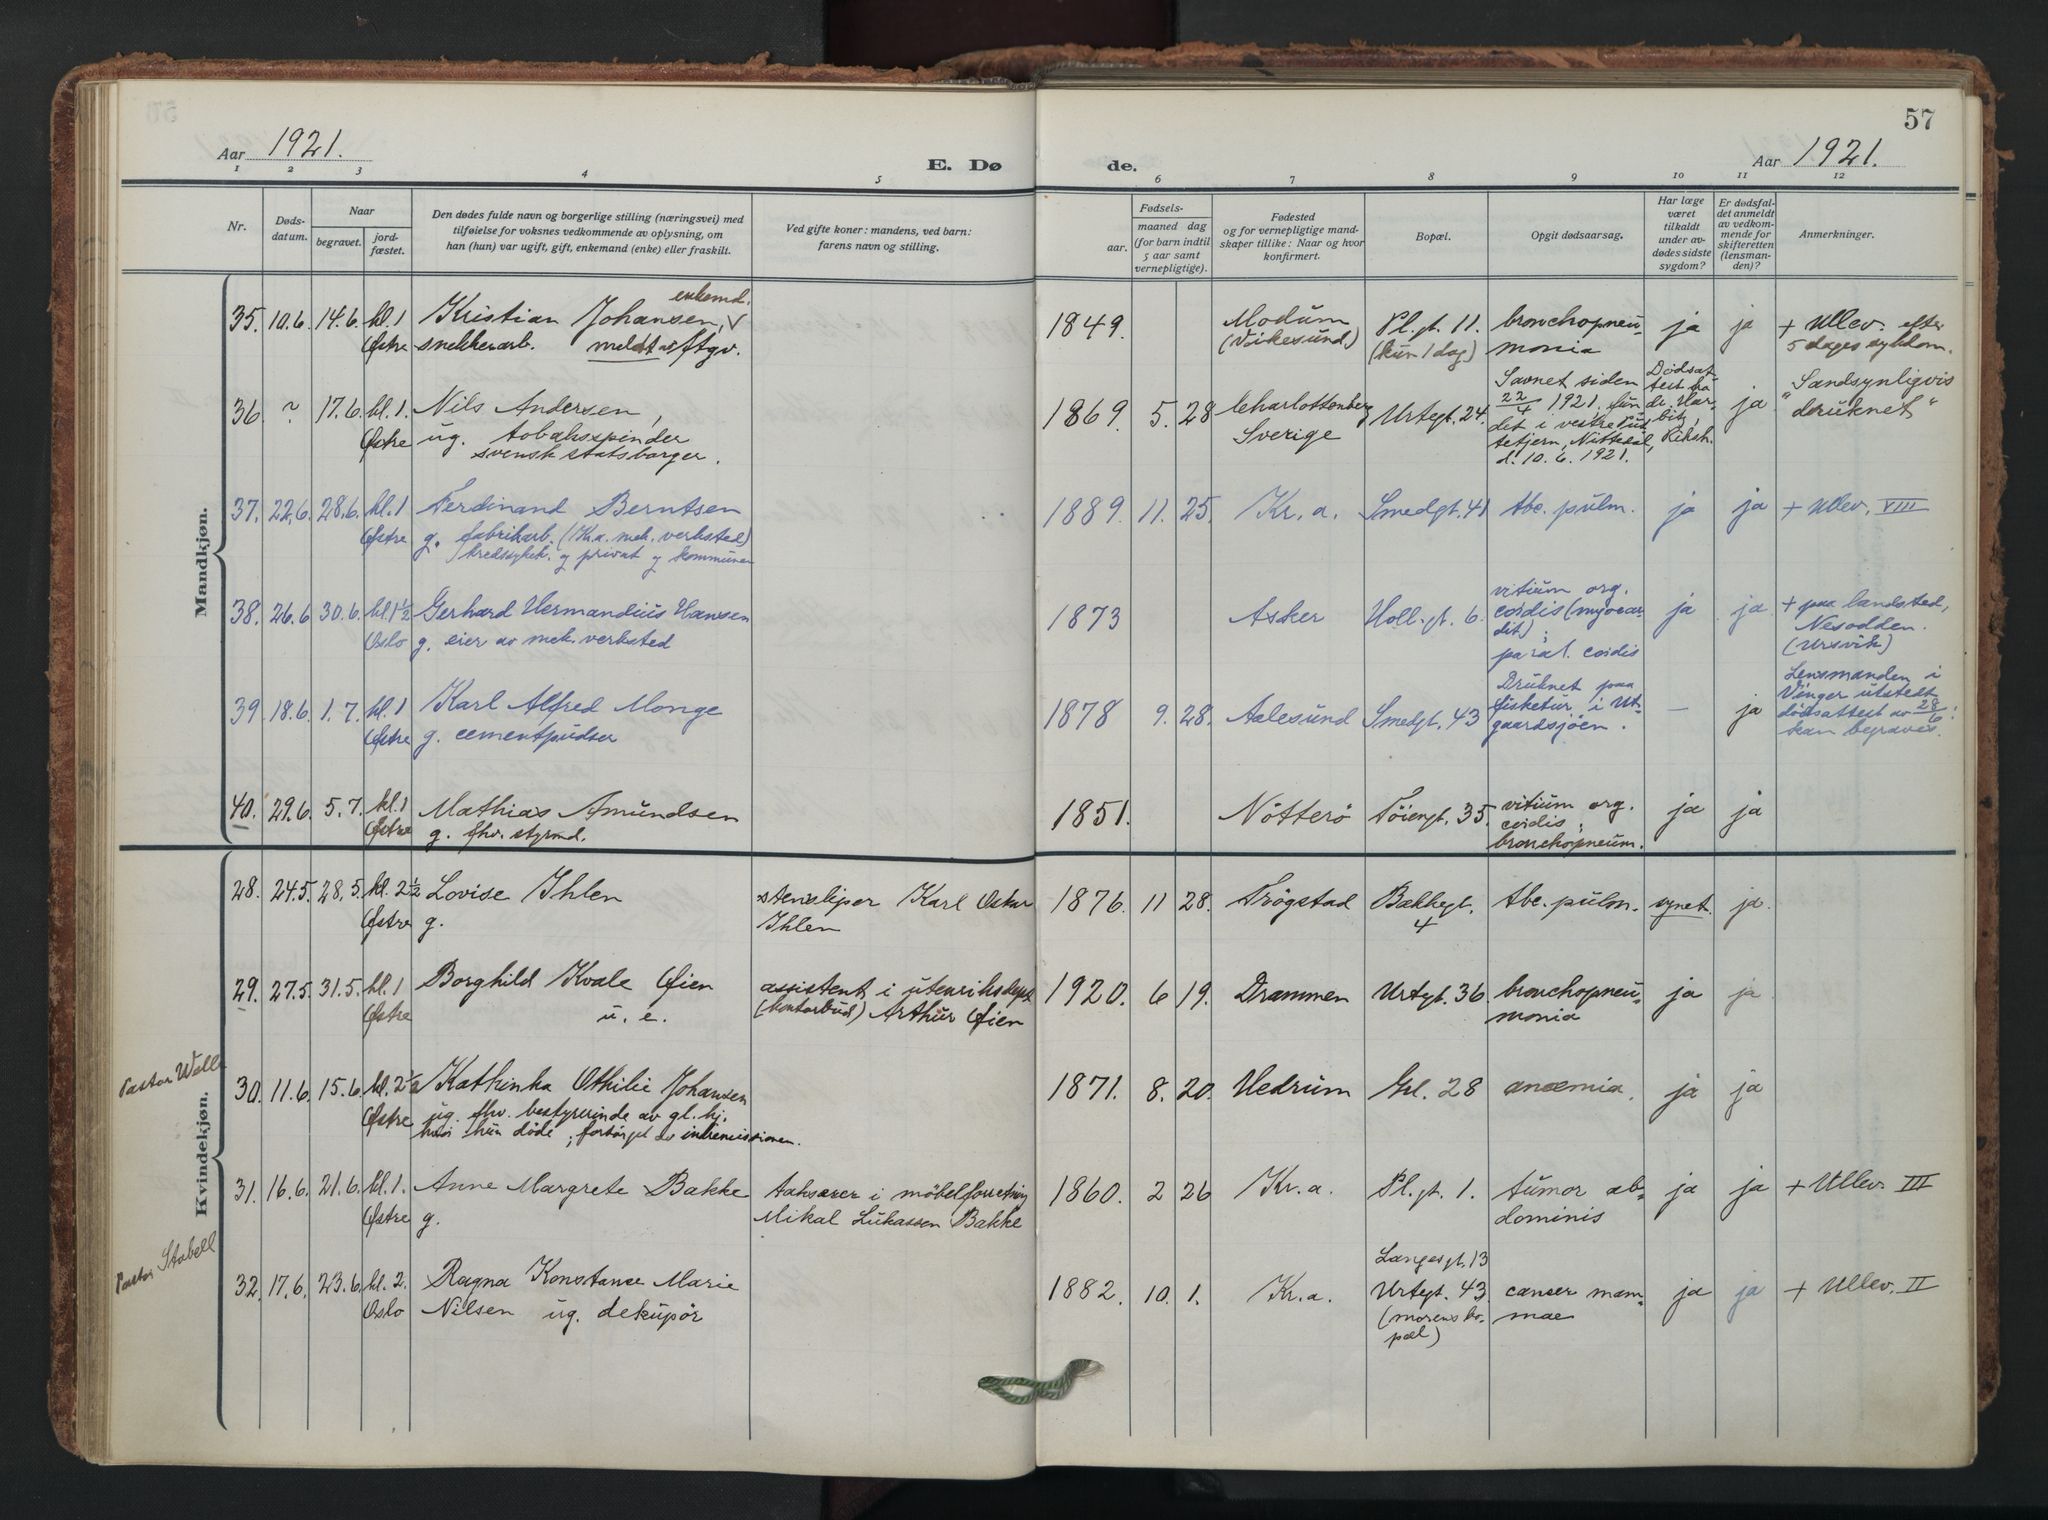 57
Aar 1921.
E. Dø de.
Aar 1921.
1 2 3 4 5 6 7 8 9 10 11 12
Nr.
Døds-
datum.
Naar
begravet.
jord-
fæstet.
Den dødes fulde navn og borgerlige stilling (næringsvei) med
tilføielse for voksnes vedkommende av oplysning, om
han (hun) var ugift, gift, enkemand (enke) eller fraskilt.
Ved gifte koner: mandens, ved barn:
farens navn og stilling.
Fødsels-
aar.
maaned dag
(for barn indtil
5 aar samt
vernepligtige).
Fødested
og for vernepligtige mand-
skaper tillike: Naar og hvor
konfirmert.
Bopæl.
Opgit dødsaarsag.
Har læge
været
tilkaldt
under av-
dødes sidste
sygdom?
Er dødsfal-
det anmeldt
av vedkom-
mende for
skifteretten
(lensman-
den)?
Anmerkninger.
Mandkjøn.
35. 10.6. 14.6. kl. 1
Østre
enkemd.
Kristian Johansen,
snekkerarb. meldt av ftgv.
1849.
Modum
(Vikesund)
Pl.gt. 11.
(kun 1 dag)
bronchopneu-
monia
ja ja
+ Ullev. efter
5 dages sykdom.
36. ? 17.6. kl. 1.
Østre
Nils Andersen,
ug. tobaksspinder
svensk statsborger.
1869. 5. 28.
Charlottenberg
Sverige
Urtegt. 24.
Savnet siden
22/4 1921, fun
det i vestre Put
tetjern, Nittedal,
d. 10.6.1921.
Dødsat-
test fra
dr. Har-
bitz,
Riksh.
ja
"Sandsynligvis
druknet"
37. 22.6. 28.6. kl. 1
Østre
Ferdinand Berntsen
g. fabrikarb. (Kr.a. mek. verksted)
kredssykek. og privat og kommunen
1889. 11. 25.
Kr.a.
Smedgt. 41
tbc. pulm.
ja ja
+ Ullev. VIII
38. 26.6 30.6. kl. 1 1/2
Oslo
Gerhard Hermandius Hansen
g. eier av mek. verksted
1873
Asker
Holl.gt. 6.
vitium org.
cordis (myocar-
dit);
paral. cordis
ja ja
+ paa landsted,
Nesodden.
(Ursvik)
39. 18.6. 1.7. kl. 1
Østre
Karl Alfred Monge
g. cementpudser
1878 9. 28.
Aalesund
Smedgt. 43
Druknet paa
fisketur i Ut-
gaardsjøen.
— ja
Lensmanden i
Vinger utstedt
dødsattest av 28/6:
kan begraves.
40. 29.6. 5.7. kl. 1
Østre
Mathias Amundsen
g. fhv. styrmd.
1851.
Nötterö
Töiengt. 35.
vitium org.
cordis;
bronchopneum.
ja ja
Kvindekjøn.
28. 24.5. 28.5. kl. 2 1/2
Østre
Lovise Ihlen
g.
stensliper Karl Oskar
Ihlen
1876. 11 28.
Trögstad
Bakkegt.
4
tbc. pulm.
synet. ja.
29. 27.5. 31.5. kl. 1
Østre
Borghild Kvale Øien
u. e.
assistent i utenriksdept
(kontorbud) Arthur Øien
1920. 6 19.
Drammen
Urtegt. 36.
bronchopneu-
monia
ja ja
Pastor Welle
30. 11.6. 15.6. kl. 2 1/2
Østre
Kathinka Othilie Johansen
ug. fhv. bestyrerinde av gl. hj.
hvor hun döde, forsörget av indremissionen.
1871. 8. 20.
Hedrum
Grl. 28
anæmia.
ja ja
31. 16.6. 21.6. kl. 1.
Østre
Anne Margrete Bakke
g.
takserer i möbelforretning
Mikal Lukassen Bakke
1860. 2 26
Kr.a.
Pl.gt. 1.
tumor ab-
dominis
ja ja
+ Ullev. III
Pastor Stabell
32. 17.6. 23.6. kl. 2.
Oslo
Ragna Konstance Marie
Nilsen ug. dekupör
1882. 10. 1.
Kr.a.
Langesgt. 13
Urtegt. 43
(morens bo-
pæl)
cancer mam-
mae
ja ja
+ Ullev. II